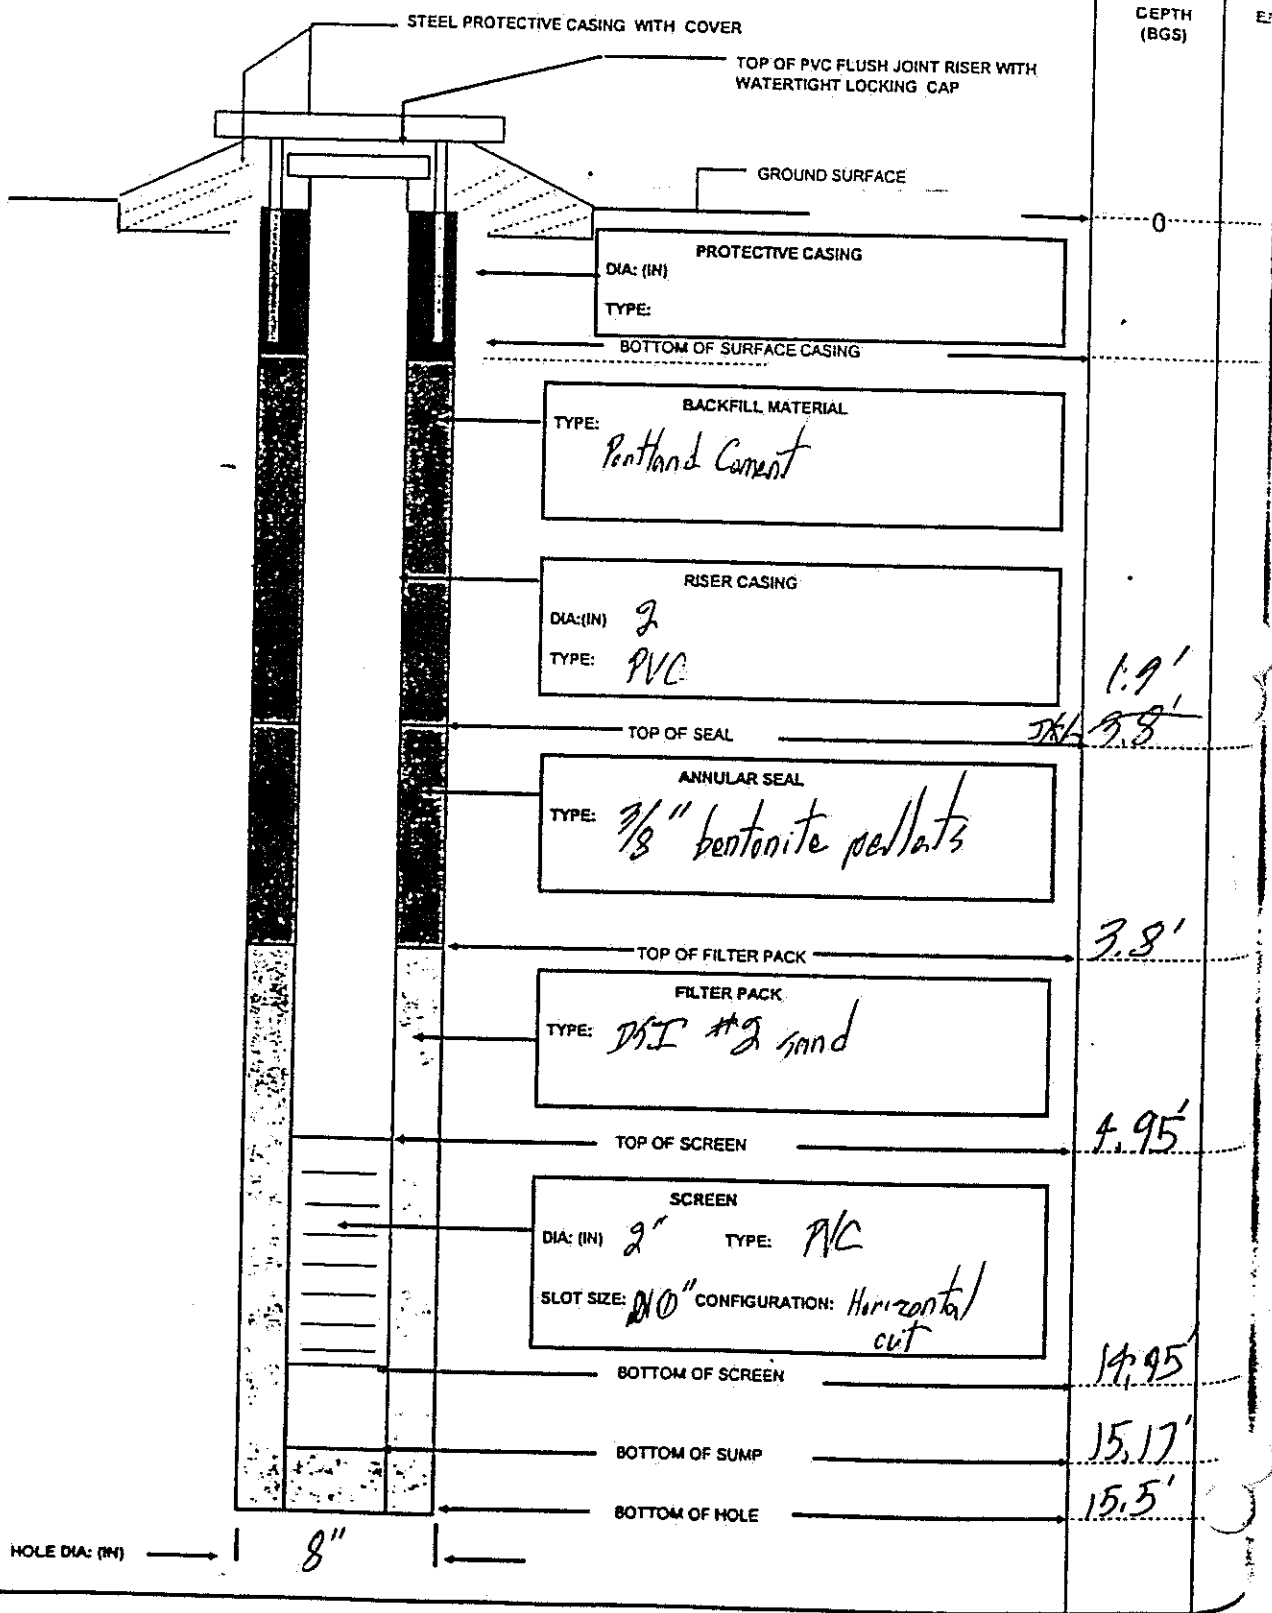 STEEL PROTECTIVE CASING WITH COVER
DEPTH
(BGS)
TOP OF PVC FLUSH JOINT RISER WITH
WATERTIGHT LOCKING CAP
GROUND SURFACE
0
PROTECTIVE CASING
DIA: (IN)
TYPE:
BOTTOM OF SURFACE CASING
BACKFILL MATERIAL
TYPE:
Portland Cement
RISER CASING
DIA:(IN) 2
TYPE: PVC
1.9'
TOP OF SEAL 3.8'
ANNULAR SEAL
TYPE: 3/8" bentonite pellets
TOP OF FILTER PACK 3.8'
FILTER PACK
TYPE: DSI #2 sand
TOP OF SCREEN 4.95'
SCREEN
DIA: (IN) 2" TYPE: PVC
SLOT SIZE: CONFIGURATION: Horizontal
cut
BOTTOM OF SCREEN 14.95'
BOTTOM OF SUMP 15.17'
BOTTOM OF HOLE 15.5'
HOLE DIA: (IN) 8"